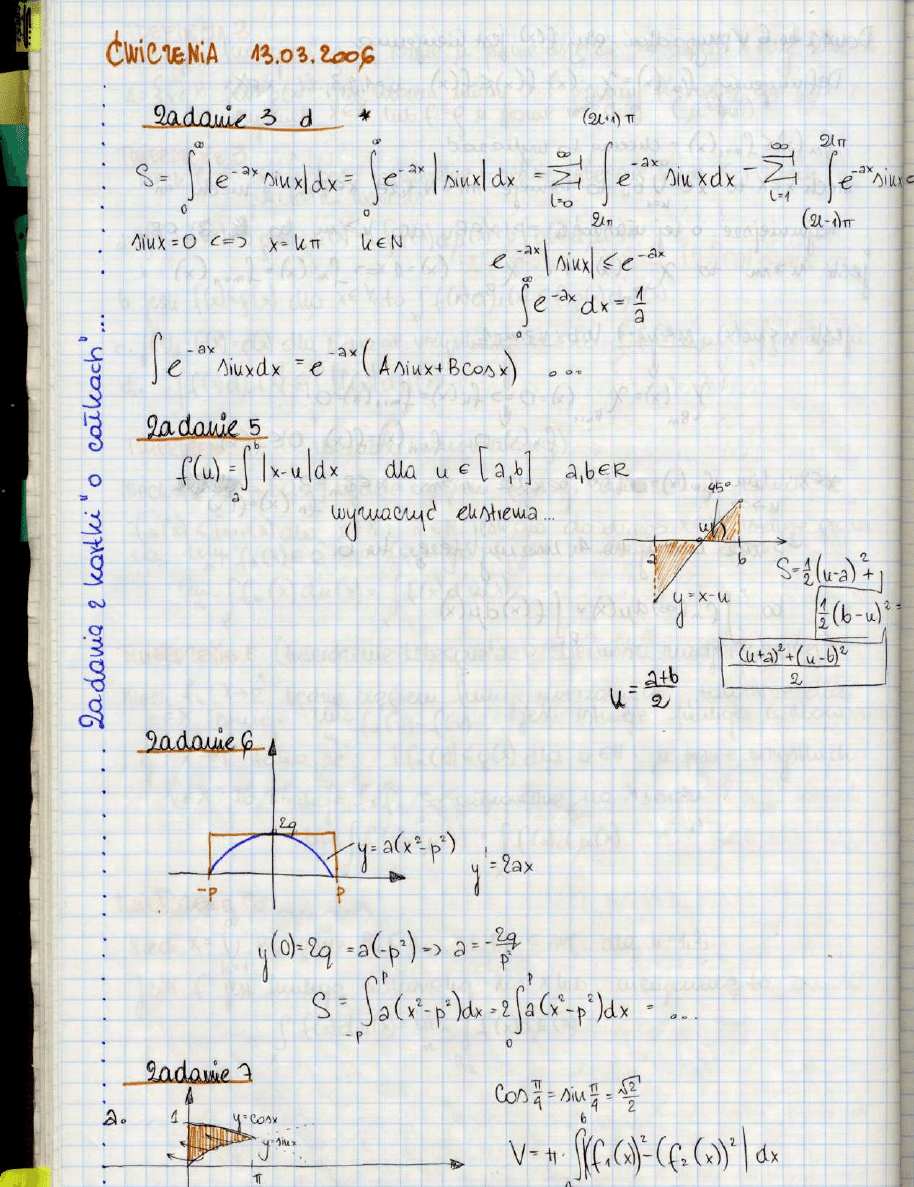 ĆWICZENIA 13.03.2006
Zadania z kartki "o całkach"...
Zadanie 3 d *
S = ∫₀^∞ |e^{-ax} sinx| dx = ∫₀^∞ e^{-ax} |sinx| dx = Σ_{l=0}^∞ ∫_{2lπ}^{(2l+1)π} e^{-ax} sinx dx - Σ_{l=1}^∞ ∫_{(2l-1)π}^{2lπ} e^{-ax} sinx
sinx = 0 <=> x = kπ k∈N
e^{-ax} |sinx| ≤ e^{-ax}
∫₀^∞ e^{-ax} dx = 1/a
∫ e^{-ax} sinx dx = e^{-ax} (A sinx + B cosx) ...
Zadanie 5
f(u) = ∫_a^b |x-u| dx dla u ∈ [a,b] a,b∈R
wyznaczyć ekstrema...
45°
u
a b
y = x-u
S = 1/2 (u-a)² +
1/2 (b-u)² =
((u+a)² + (u-b)²)/2
u = (a+b)/2
Zadanie 6
2q
y = a(x²-p²)
y' = 2ax
-p p
y(0) = 2q = a(-p²) => a = -2q/p²
S = ∫_{-p}^p a(x²-p²) dx = 2∫₀^p a(x²-p²) dx = ...
Zadanie 7
a.
1
y = cosx
y = sinx
π
cos π/4 = sin π/4 = √2/2
V = π · ∫^b |(f₁(x))² - (f₂(x))²| dx